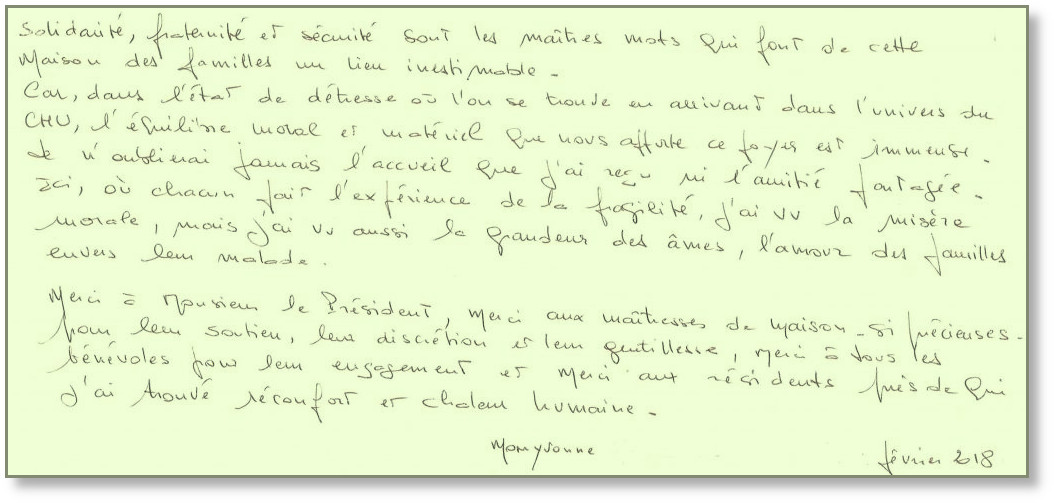 Solidarité, fraternité et sécurité sont les maîtres mots qui font de cette
Maison des familles un lieu inestimable.
Car, dans l'état de détresse où l'on se trouve en arrivant dans l'univers du
CHU, l'équilibre moral et matériel que nous apporte ce foyer est immense.
Je n'oublierai jamais l'accueil que j'ai reçu ni l'amitié partagée.
Ici, où chacun fait l'expérience de la fragilité, j'ai vu la misère
morale, mais j'ai vu aussi la grandeur des âmes, l'amour des familles
envers leur malade.
Merci à Monsieur le Président, merci aux maîtresses de maison si précieuses
pour leur soutien, leur discrétion et leur gentillesse, merci à tous les
bénévoles pour leur engagement et merci aux résidents près de qui
j'ai trouvé réconfort et chaleur humaine.
février 2018